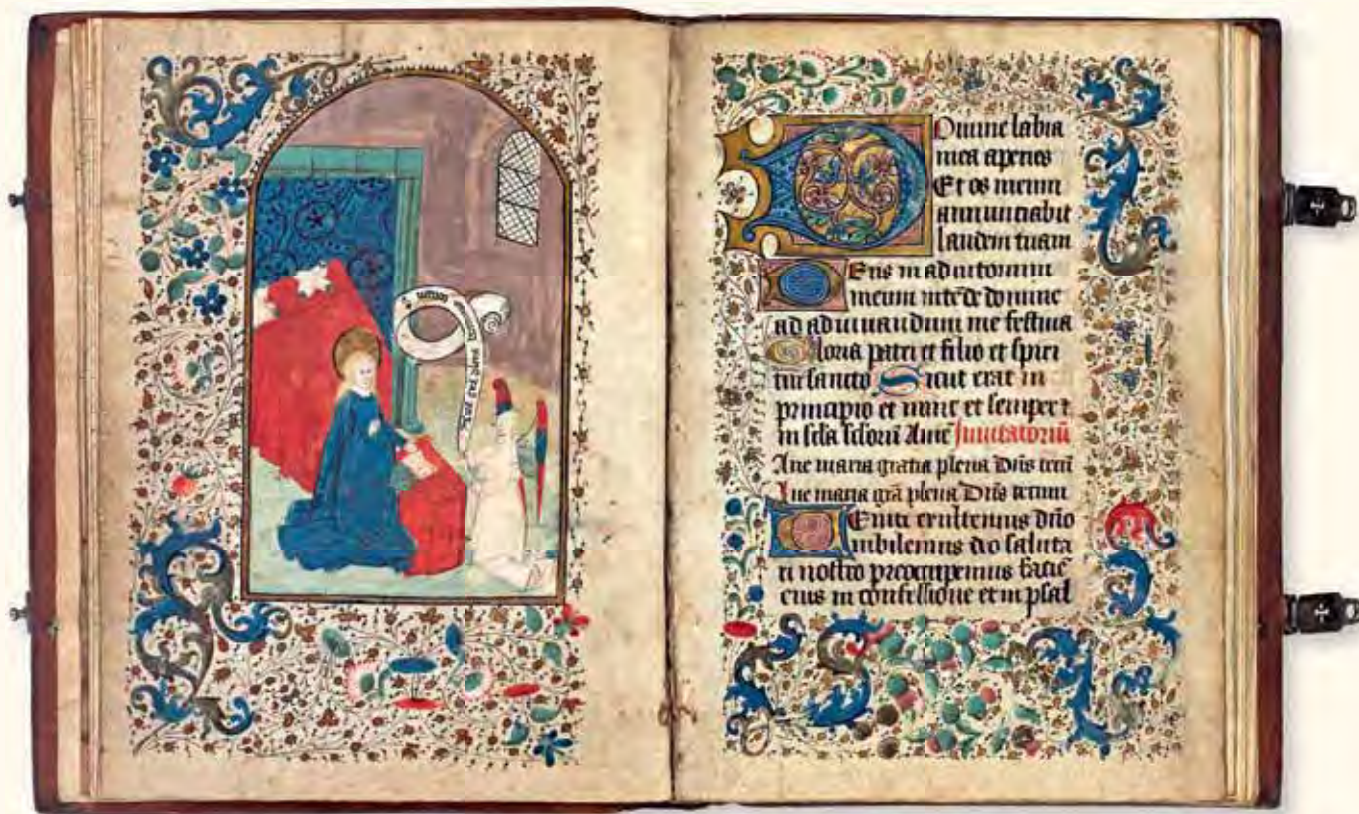 Aue gra plena dominus tecum
Domine labia
mea aperies
Et os meum
annunciabit
laudem tuam
Deus in adiutorium
meum intēde domine
ad adiuuandum me festina
Gloria patri et filio et spiri
tui sancto Sicut erat in
principio et nunc et semper ⁊
in scla sclorū Amē Inuitatoriū
Aue maria gratia plena Dn̄s tecū
Aue maria gr̄a plena Dn̄s tecum
Uenite exultemus dn̄o
iubilemus deo saluta
ri nostro preoccupemus faciē
eius in confessione et in psal